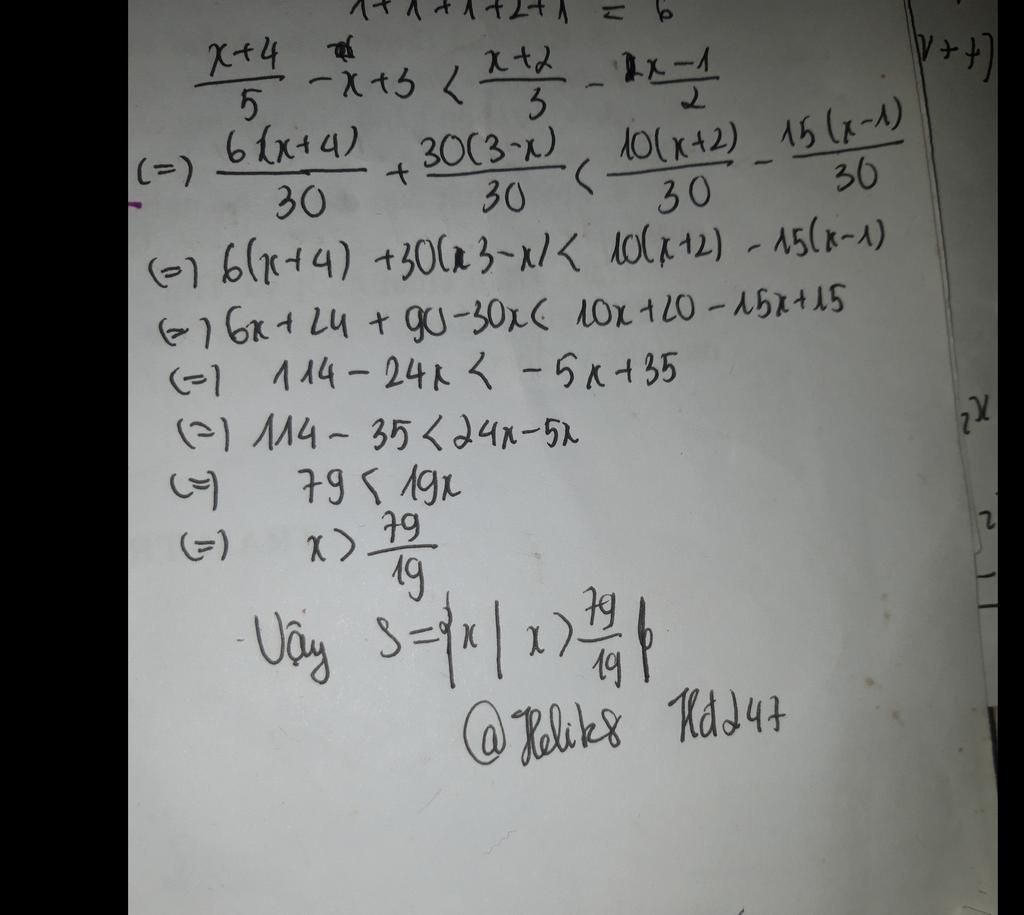 1+1+1+2+1 = 6
\frac{x+4}{5} - x+3 < \frac{x+2}{3} - \frac{x-1}{2}
(=) \frac{6(x+4)}{30} + \frac{30(3-x)}{30} < \frac{10(x+2)}{30} - \frac{15(x-1)}{30}
(=) 6(x+4) +30(3-x) < 10(x+2) - 15(x-1)
(=) 6x+24 + 90-30x < 10x+20-15x+15
(=) 114 - 24x < -5x+35
(=) 114 - 35 < 24x-5x
(=) 79 < 19x
(=) x > \frac{79}{19}
Vậy S={x | x > \frac{79}{19}}
@Helik8 Hd247